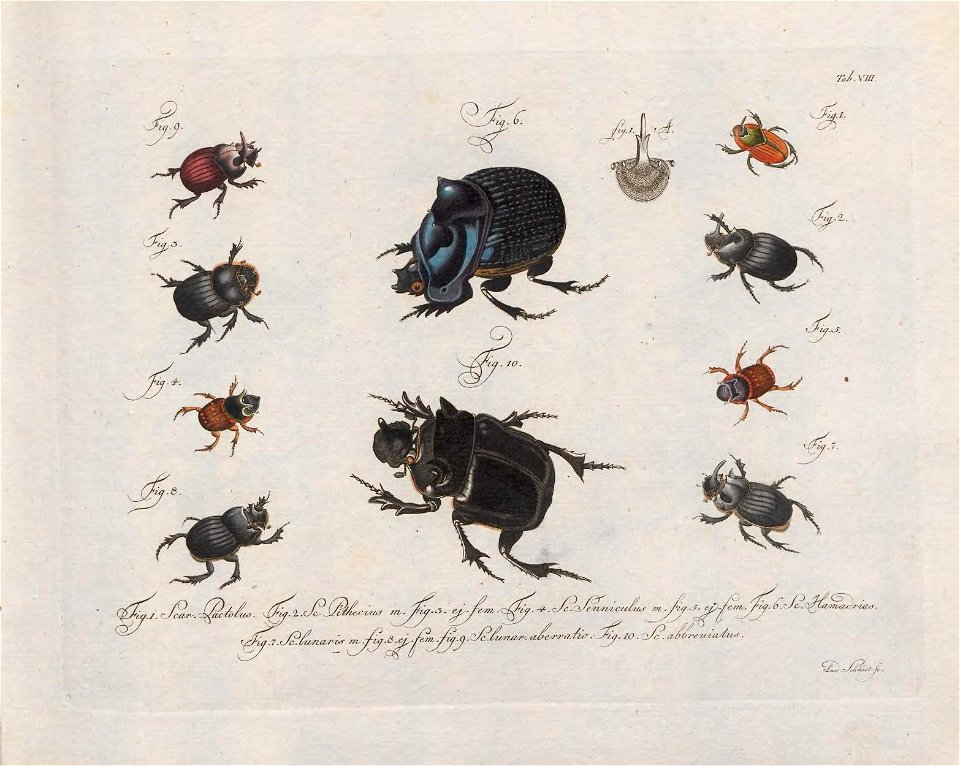 Tab. VIII.
Fig. 9.
Fig. 6.
fig. 1. A.
Fig. 1.
Fig. 3.
Fig. 2.
Fig. 4.
Fig. 10.
Fig. 5.
Fig. 8.
Fig. 7.
Fig. 1. Scar. Pactolus. Fig. 2. Sc. Pithecius m. fig. 3. ej. fem. Fig. 4. Sc. Senniculus m. fig. 5. ej. fem. Fig. 6. Sc. Hamadrias.
Fig. 7. Sc. lunaris m. fig. 8. ej. fem. fig. 9. Sc. lunar. aberratio. Fig. 10. Sc. abbreviatus.
Schmidt fc.